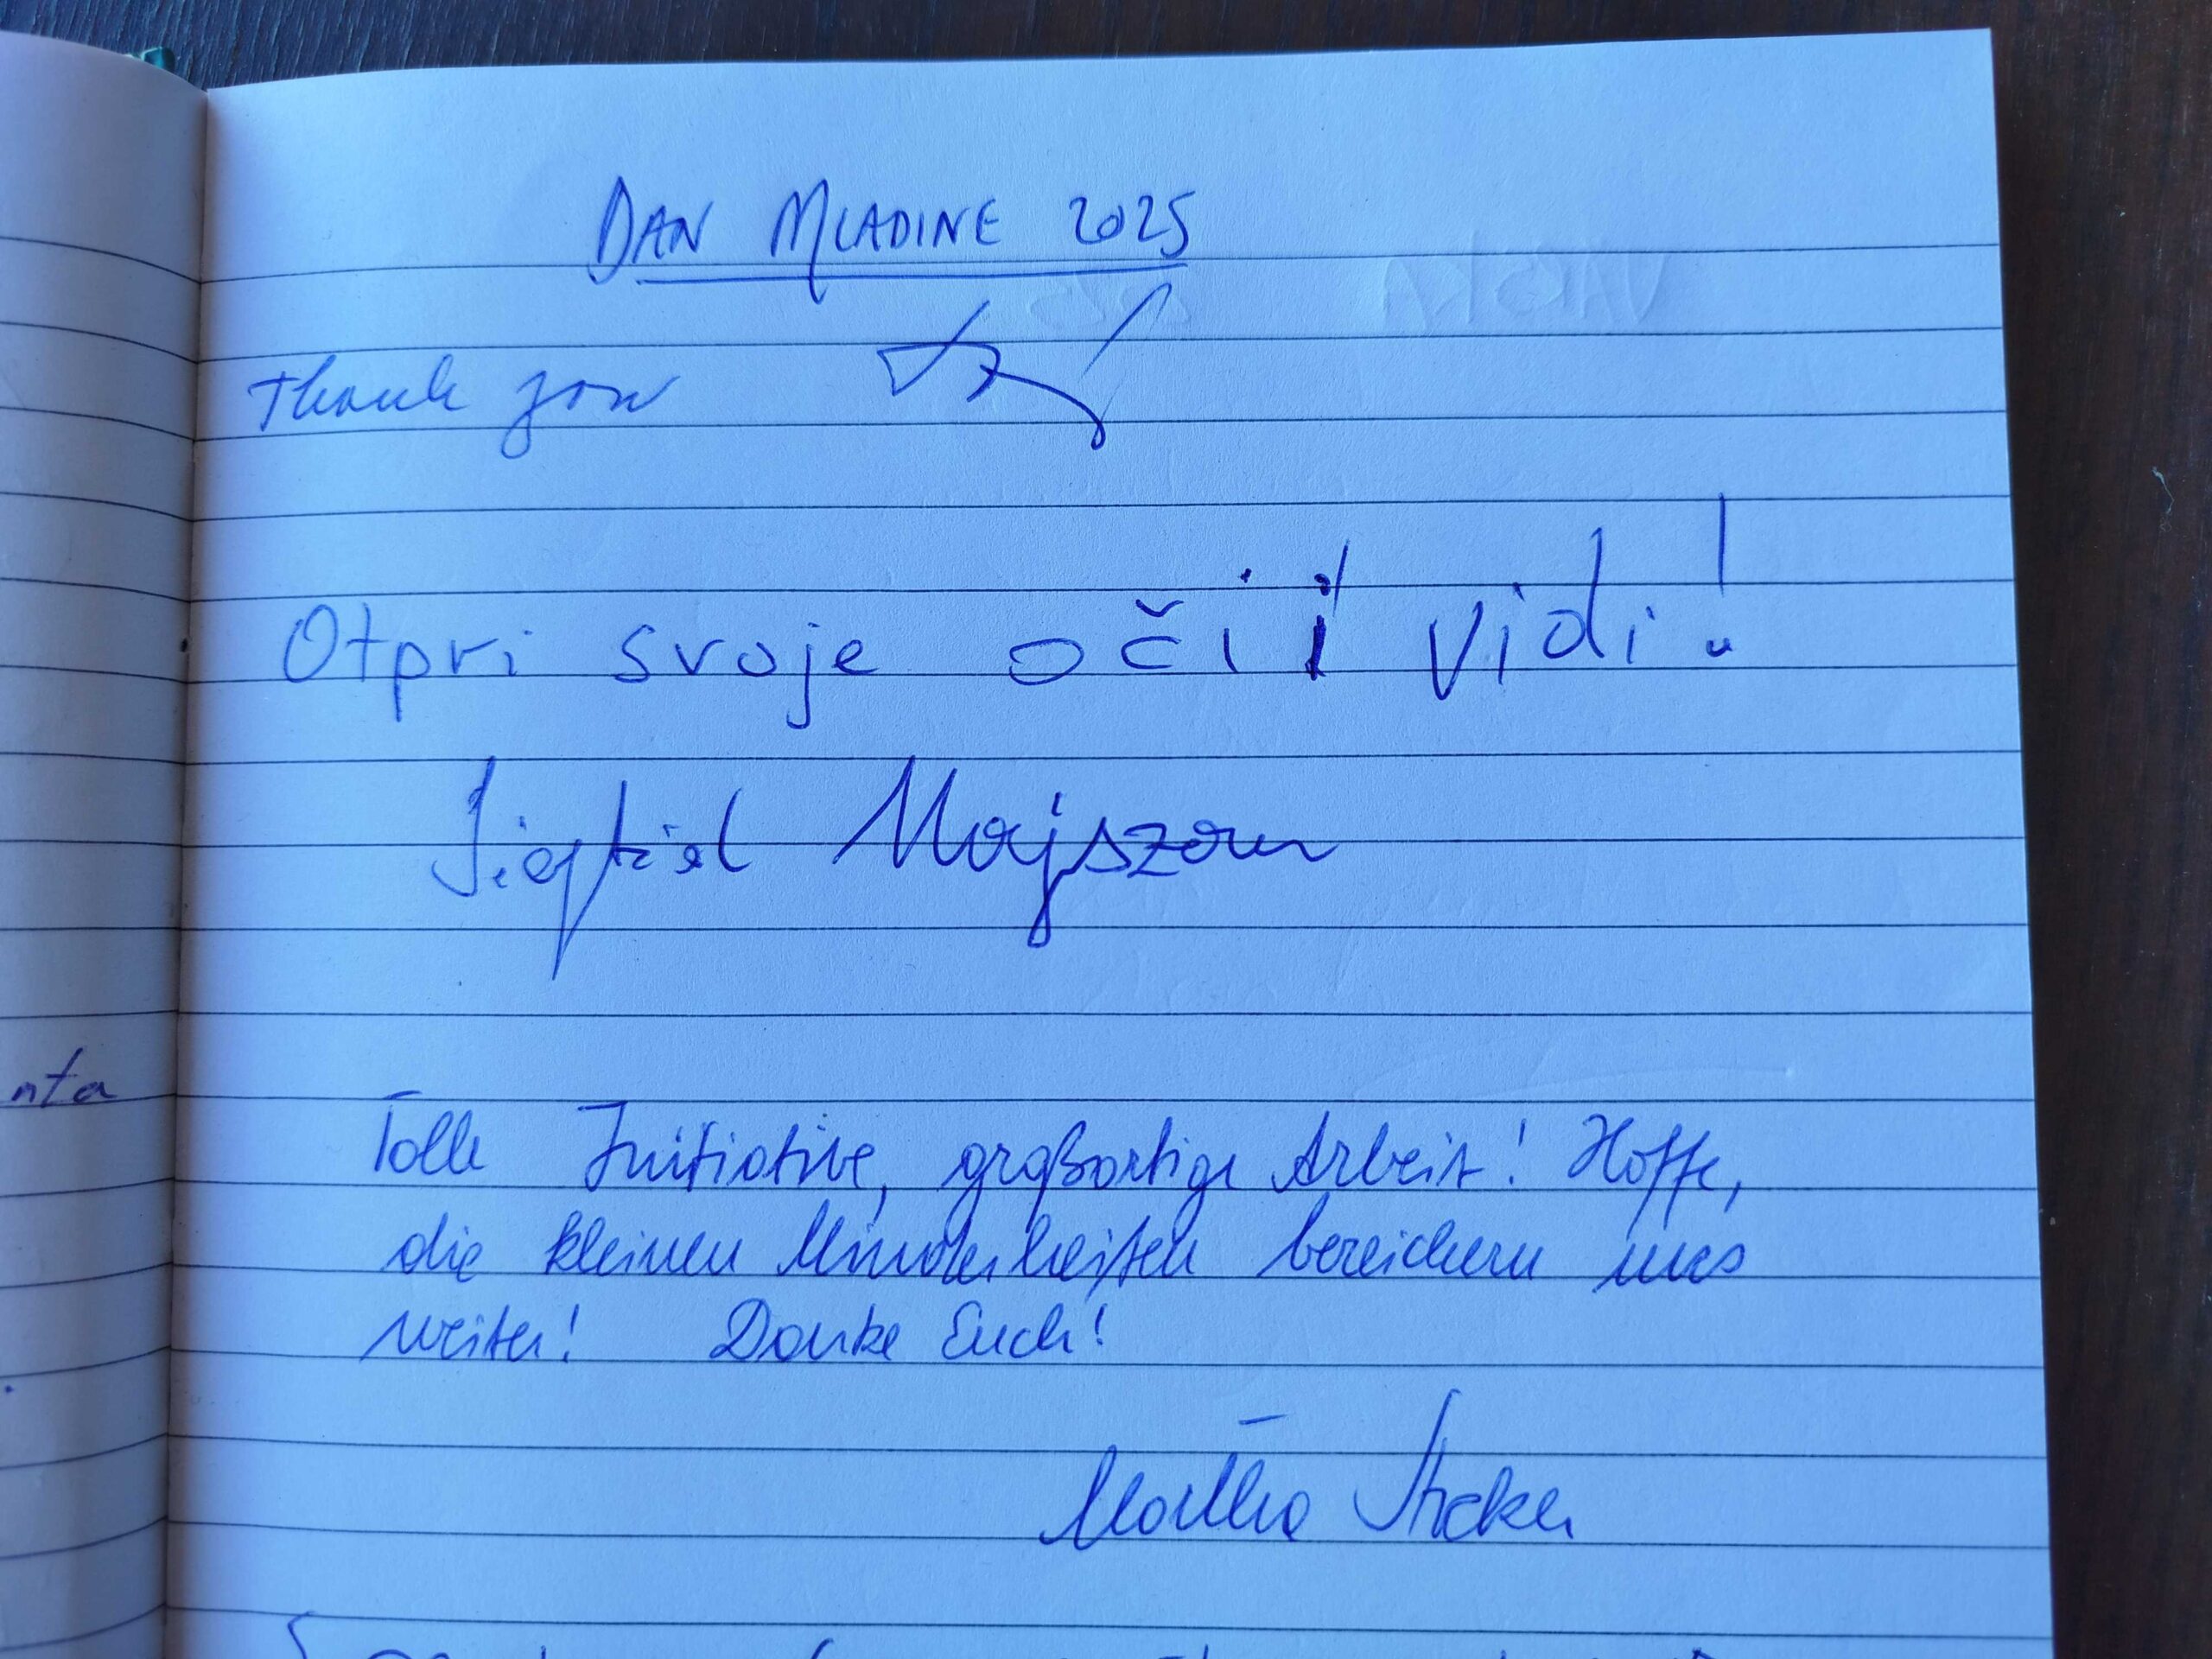 DAN MLADINE 2025
Thank you
Otpri svoje oči i vidi!
Majszan
nta
Tolle Initiative, großartige Arbeit! Hoffe,
die kleinen Minderheiten bereichern uns
weiter! Danke Euch!
Martha